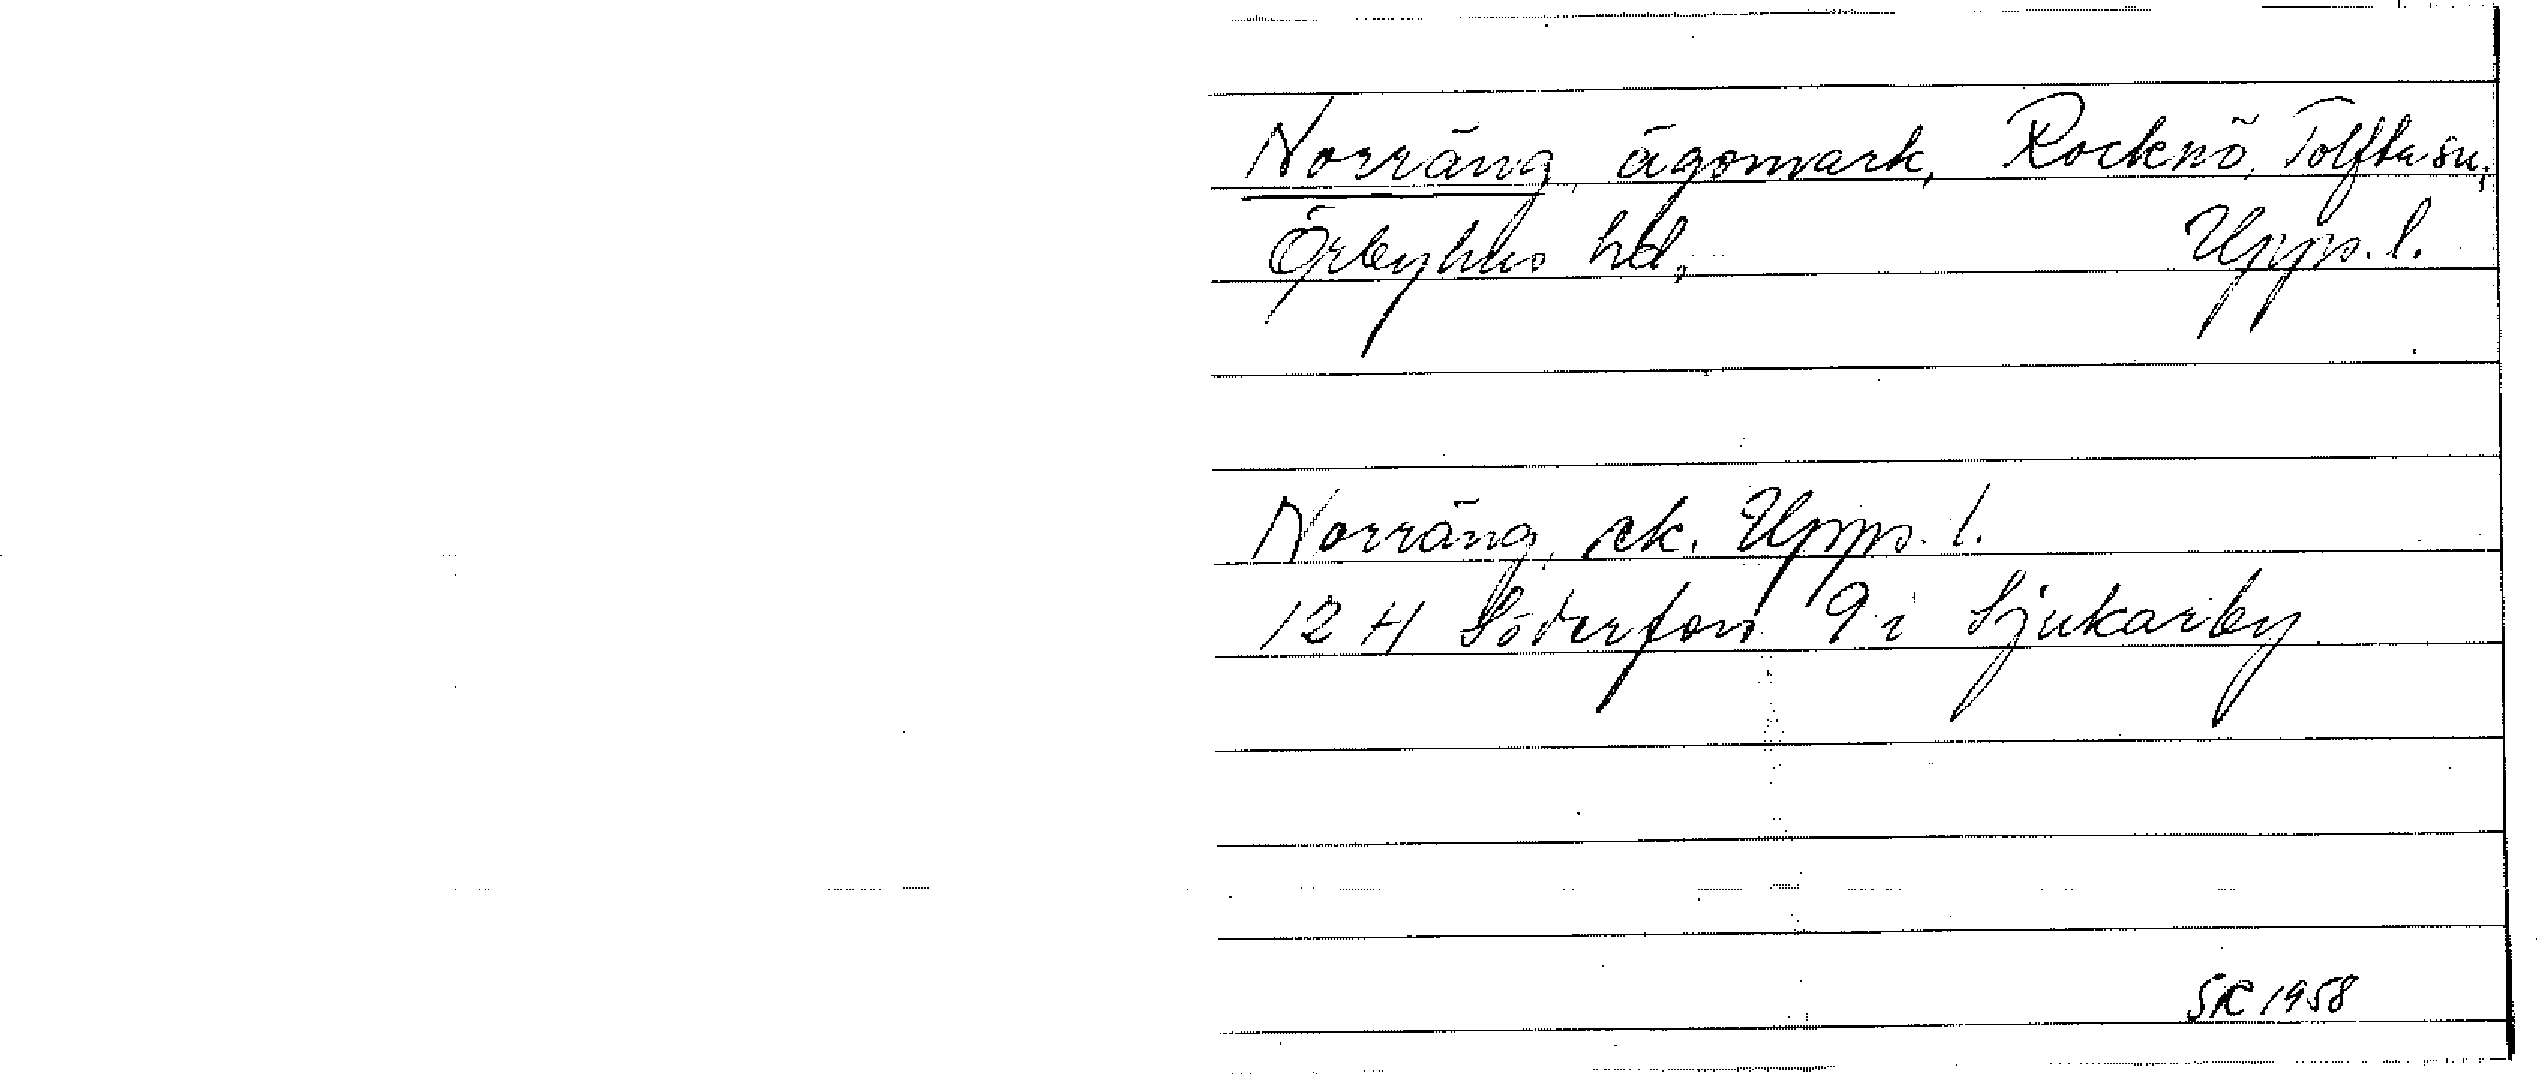 Norräng, ägomark, Rocknö, Tolfta sn,
Örbyhus hd, Upps. l.
Norräng, ek. Upps. l.
12 H Söderfors 9 i Sjukarby
SR 1958